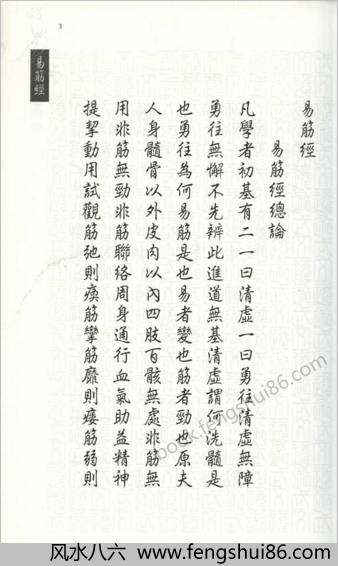 3
易筋經
易筋經
易筋經總論
凡學者初基有二一曰清虛一曰勇往清虛無障
勇往無懈不先辨此進道無基清虛謂何洗髓是
也勇往為何易筋是也易者變也筋者勁也原夫
人身髓骨以外皮肉以內四肢百骸無處非筋無
用非筋無勁非筋聯絡周身通行血氣助益精神
提挈動用試觀筋弛則瘓筋攣筋靡則痿筋弱則
book.fengshui86.com
风水八六 www.fengshui86.com